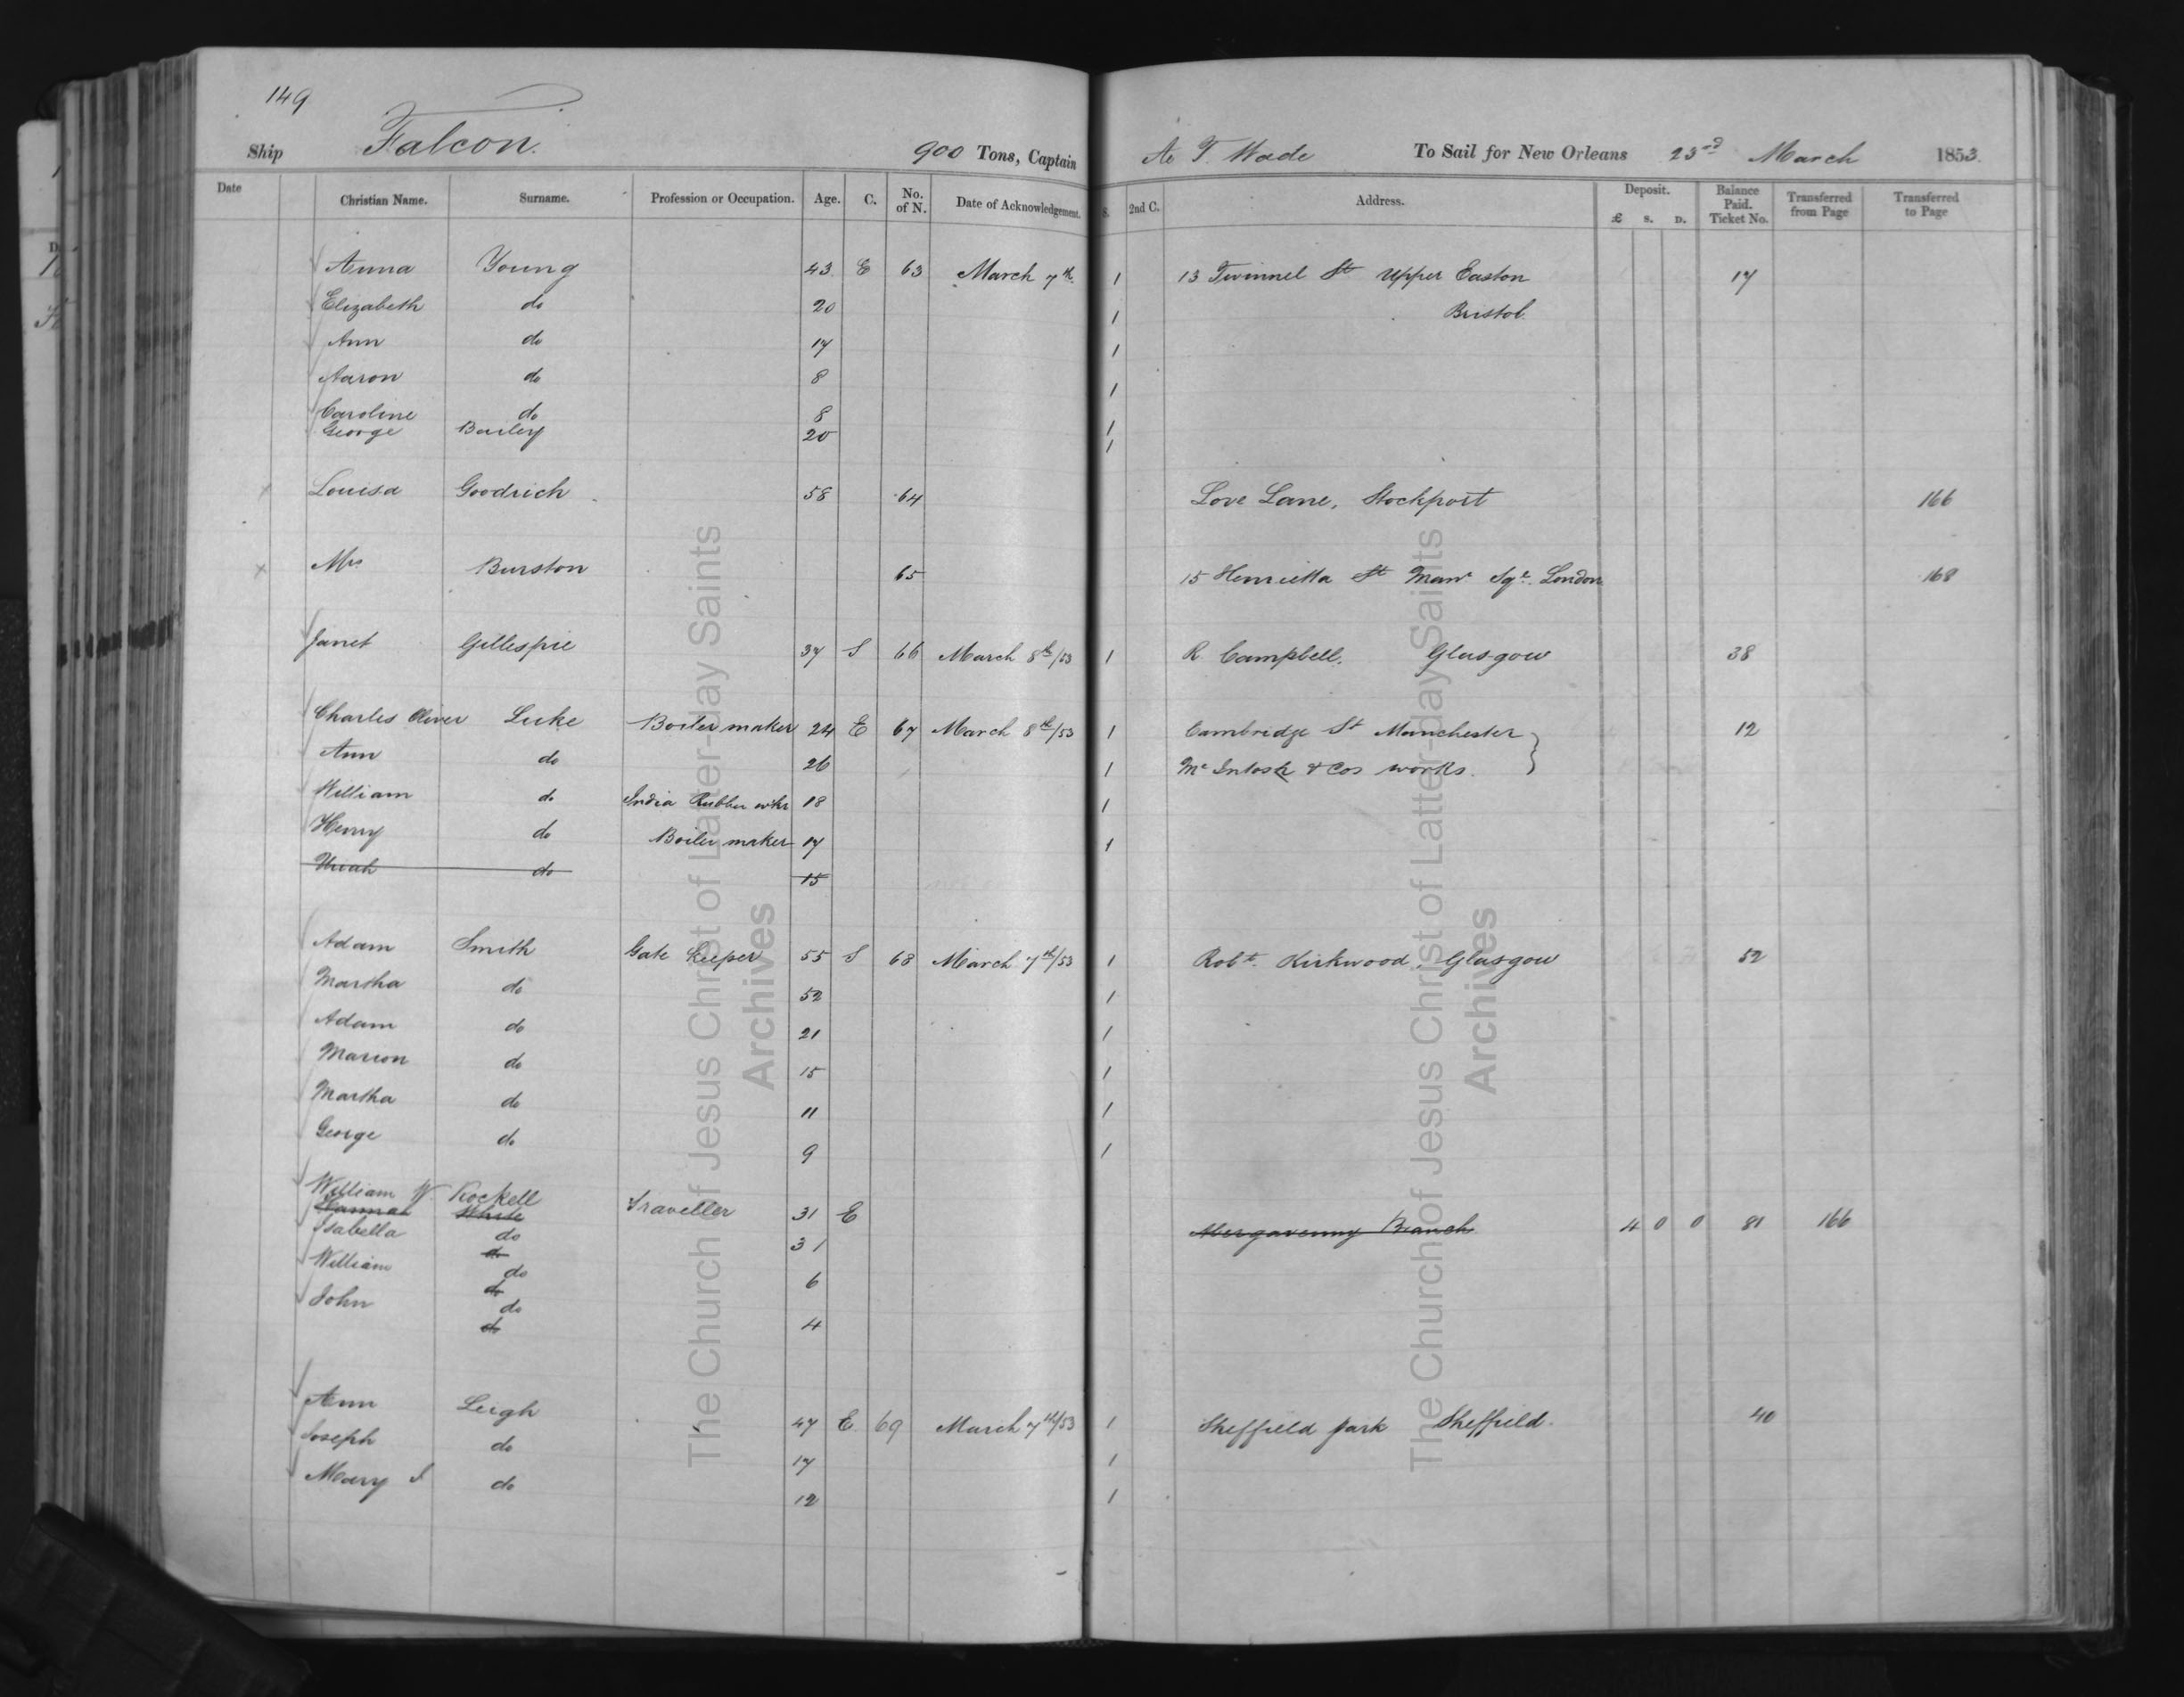 149
Ship Falcon. 900 Tons, Captain A. T. Wade To Sail for New Orleans 23rd March 1853.
Date Christian Name. Surname. Profession or Occupation. Age. C. No. of N. Date of Acknowledgement. S. 2nd C. Address. Deposit. £ s. D. Balance Paid. Ticket No. Transferred from Page Transferred to Page
Anna Young 43 E 63 March 7th 1 13 Twinnel St Upper Easton 17
Elizabeth do 20 1 Bristol.
Ann do 17 1
Aaron do 8 1
Caroline do 8 1
George Bailey 20 1
x Louisa Goodrich 58 64 Love Lane, Stockport 166
x Mrs Burston 65 15 Henrietta St Manr Sqe. London 168
Janet Gillespie 37 S 66 March 8th/53 1 R. Campbell. Glasgow 38
Charles Oliver Luke Boiler maker 24 E 67 March 8th/53 1 Cambridge St Manchester 12
Ann do 26 1 Mc Intosh & Cos works.
William do India Rubber wkr 18 1
Henry do Boiler maker 17 1
Uriah do 15
Adam Smith Gate Keeper 55 S 68 March 7th/53 1 Robt. Kirkwood, Glasgow 52
Martha do 52 1
Adam do 21 1
Marion do 15 1
Martha do 11 1
George do 9 1
William W. Kockell Traveller 31 E Abergavenny Branch 4 0 0 81 166
Hannah White
Isabella do 31
do
William do 6
do
John do 4
do
Ann Leigh 47 E 69 March 7th/53 1 Sheffield park Sheffield. 40
Joseph do 17 1
Mary S do 12 1
The Church of Jesus Christ of Latter-day Saints
Archives
The Church of Jesus Christ of Latter-day Saints
Archives